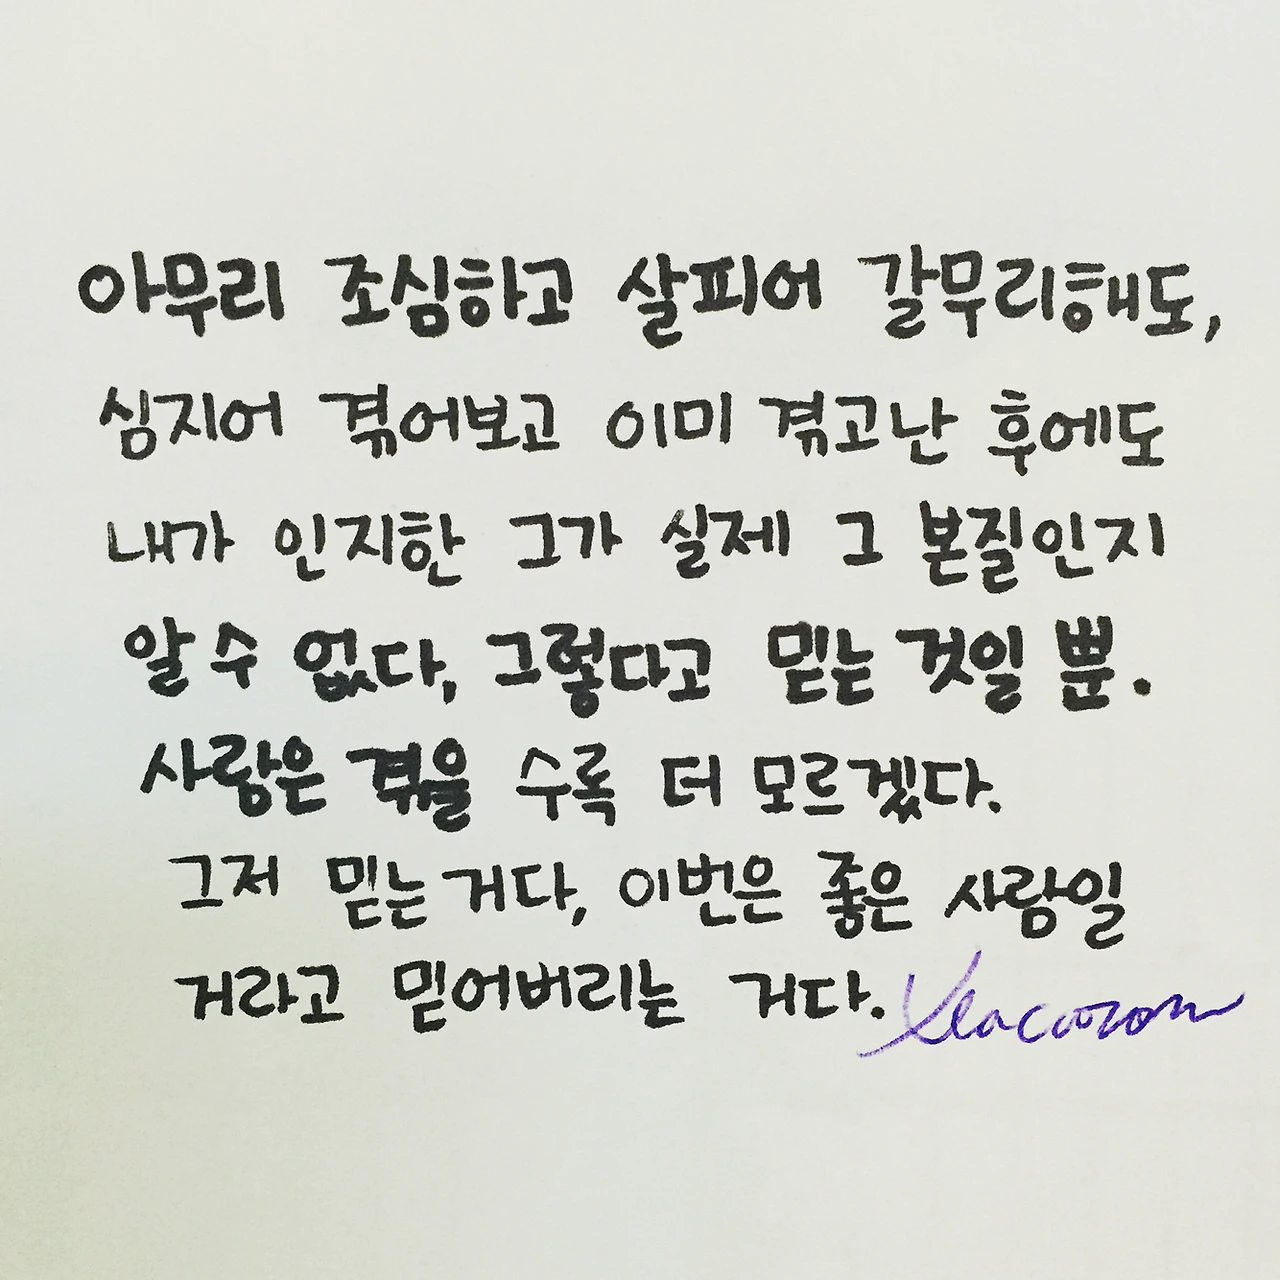 아무리 조심하고 살피어 갈무리해도,
심지어 겪어보고 이미 겪고난 후에도
내가 인지한 그가 실제 그 본질인지
알 수 없다, 그렇다고 믿는 것일 뿐.
사랑은 겪을 수록 더 모르겠다.
그저 믿는 거다, 이번은 좋은 사람일
거라고 믿어버리는 거다.